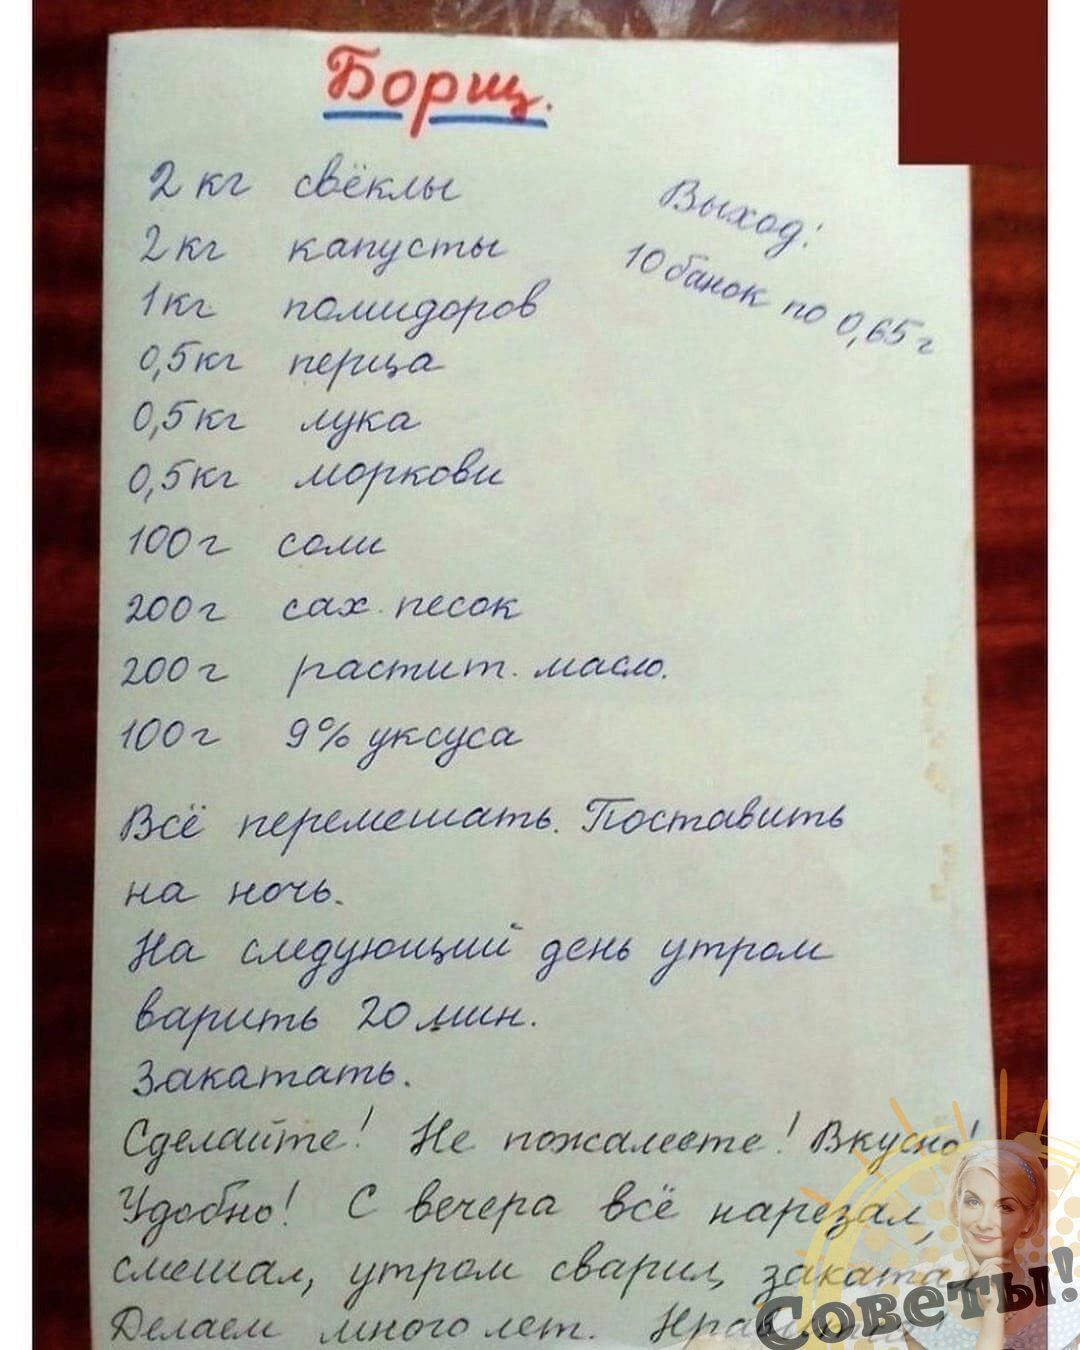 Борщ.
2 кг свёклы
Выход:
2 кг капусты
10 банок по 0,65 г
1 кг помидоров
0,5 кг перца
0,5 кг лука
0,5 кг моркови
100 г соли
200 г сах. песок
200 г растит. масло.
100 г 9% уксуса
Всё перемешать. Поставить
на ночь.
На следующий день утром
варить 20 мин.
Закатать.
Сделайте! Не пожалеете! Вкусно!
Удобно! С вечера всё нарезал,
смешал, утром сварил, закатал
Делаем много лет.
Советы!